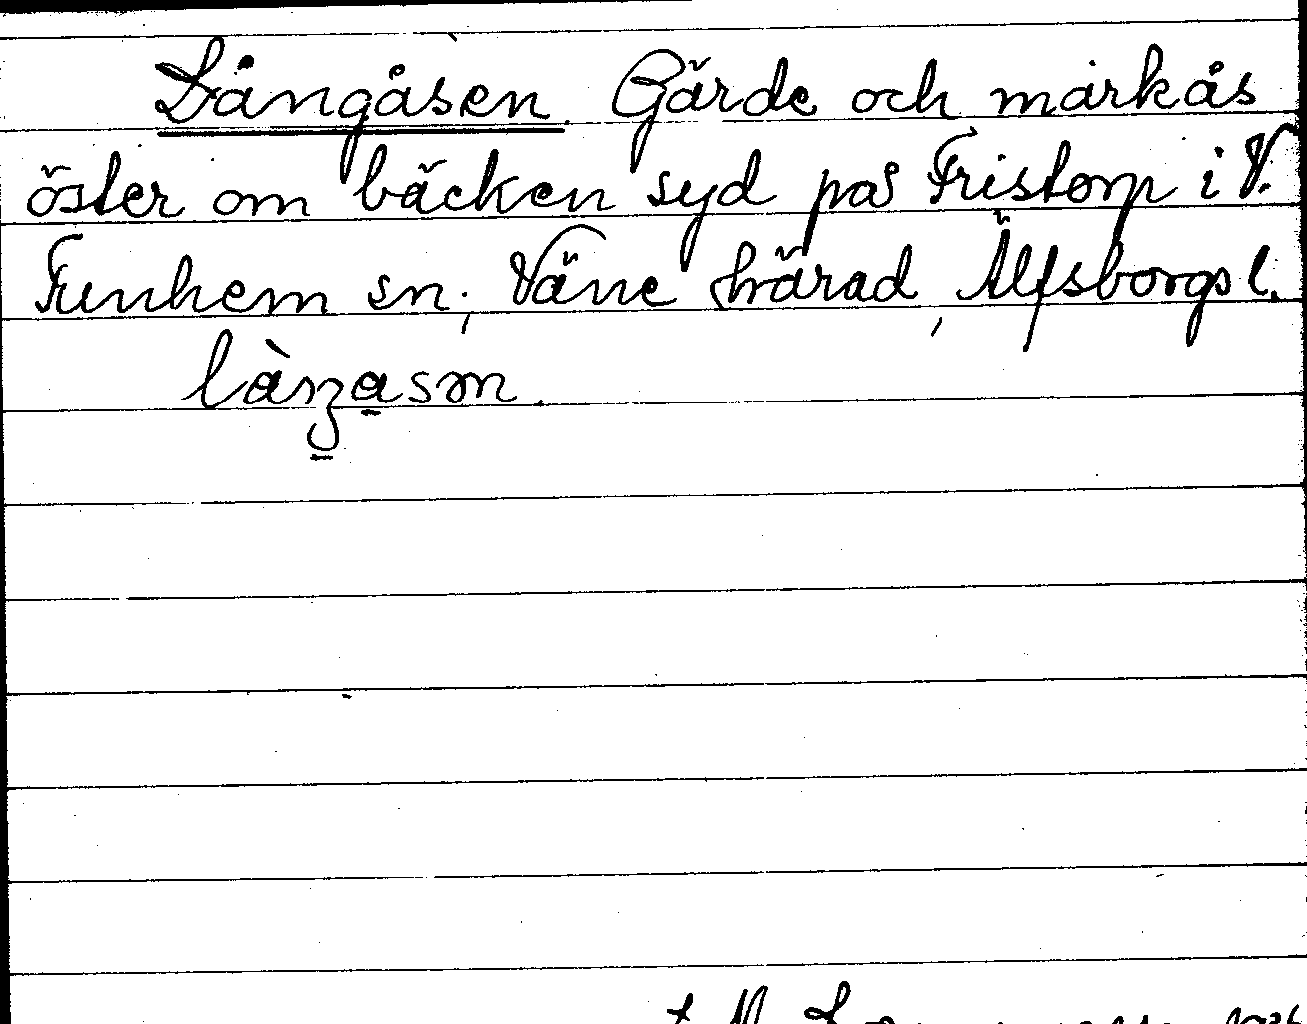 Långåsen. Gärde och markås
öster om bäcken syd på Fristorp i V.
Tunhem sn; Väne härad, Älfsborgs l.
làŋa̱sm.